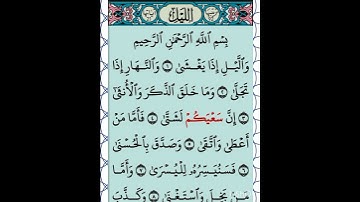 الليل
بِسْمِ اللَّهِ الرَّحْمَٰنِ الرَّحِيمِ
وَاللَّيْلِ إِذَا يَغْشَىٰ ۝١ وَالنَّهَارِ إِذَا
تَجَلَّىٰ ۝٢ وَمَا خَلَقَ الذَّكَرَ وَالْأُنثَىٰ
۝٣ إِنَّ سَعْيَكُمْ لَشَتَّىٰ ۝٤ فَأَمَّا مَنْ
أَعْطَىٰ وَاتَّقَىٰ ۝٥ وَصَدَّقَ بِالْحُسْنَىٰ
۝٦ فَسَنُيَسِّرُهُ لِلْيُسْرَىٰ ۝٧ وَأَمَّا
مَن بَخِلَ وَاسْتَغْنَىٰ ۝٨ وَكَذَّبَ